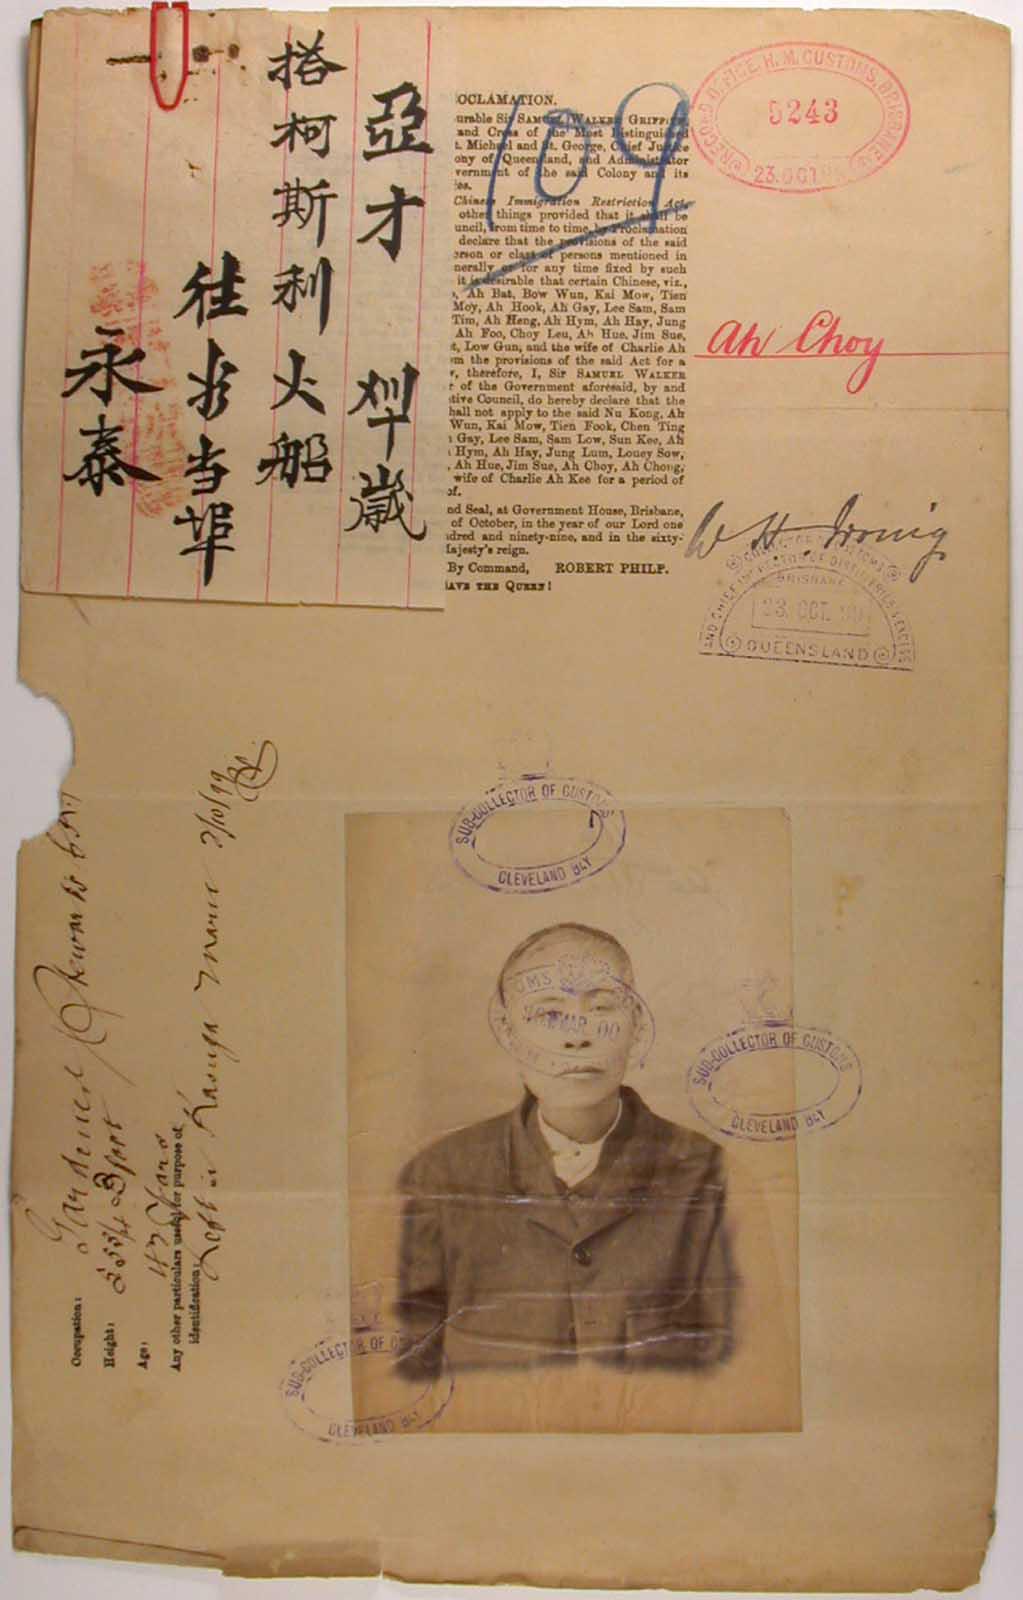 亞才 卌歲
搭柯斯利火船
往当埠
永泰
OCLAMATION.
urable Sir SAMUEL WALKER GRIFFITH,
and Cross of the Most Distinguished
t. Michael and St. George, Chief Justice
ony of Queensland, and Administrator
vernment of the said Colony and its
ies.
Chinese Immigration Restriction Act,
other things provided that it shall be
uncil, from time to time, by Proclamation
declare that the provisions of the said
erson or class of persons mentioned in
nerally or for any time fixed by such
it is desirable that certain Chinese, viz.,
, Ah Bat, Bow Wun, Kai Mow, Tien
Moy, Ah Hook, Ah Gay, Lee Sam, Sam
Tim, Ah Heng, Ah Hym, Ah Hay, Jung
Ah Foo, Choy Leu, Ah Hue, Jim Sue,
t, Low Gun, and the wife of Charlie Ah
om the provisions of the said Act for a
w, therefore, I, Sir SAMUEL WALKER
r of the Government aforesaid, by and
tive Council, do hereby declare that the
hall not apply to the said Nu Kong, Ah
Wun, Kai Mow, Tien Fook, Chen Ting
Gay, Lee Sam, Sam Low, Sun Kee, Ah
Hym, Ah Hay, Jung Lum, Louey Sow,
, Ah Hue, Jim Sue, Ah Choy, Ah Chong,
wife of Charlie Ah Kee for a period of
of.
nd Seal, at Government House, Brisbane,
of October, in the year of our Lord one
dred and ninety-nine, and in the sixty-
Majesty's reign.
By Command, ROBERT PHILP.
AVE THE QUEEN!
109
RECORD OFFICE, H. M. CUSTOMS, BRISBANE
5243
23. OCT
Ah Choy
W H Irving
COLLECTOR OF CUSTOMS
AND CHIEF INSPECTOR OF DISTILLERIES
BRISBANE
23. OCT. 99
QUEENSLAND
Occupation: Gardener
Height: 5 ft
Age: Years
Any other particulars useful for purpose of
identification: Left in Kasuga Maru 2/10/99
SUB-COLLECTOR OF CUSTOMS
CLEVELAND BAY
MAR. 00
SUB-COLLECTOR OF CUSTOMS
CLEVELAND BAY
SUB-COLLECTOR OF CUSTOMS
CLEVELAND BAY